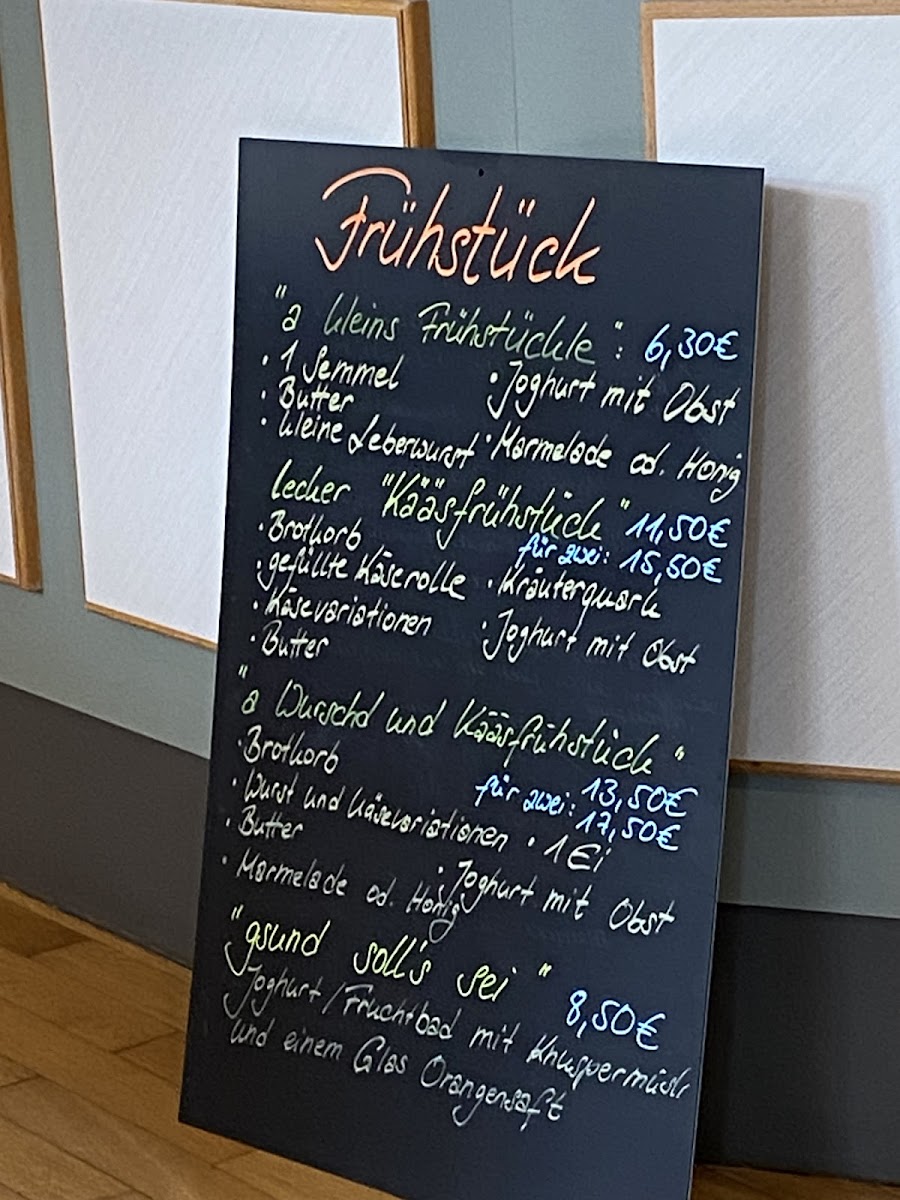 Frühstück
"a kleins Frühstückle": 6,30€
· 1 Semmel · Joghurt mit Obst
· Butter
· kleine Leberwurst · Marmelade od. Honig
lecker "Kääsfrühstück" 11,50€
für zwei: 15,50€
· Brotkorb
· gefüllte Käserolle · Kräuterquark
· Käsevariationen · Joghurt mit Obst
· Butter
"a Wurschd und Kääsfrühstück"
13,50€
für zwei: 17,50€
· Brotkorb
· Wurst und Käsevariationen · 1 Ei
· Butter · Joghurt mit Obst
· Marmelade od. Honig
"gsund soll's sei" 8,50€
Joghurt/Fruchtbad mit Knuspermüsli
und einem Glas Orangensaft